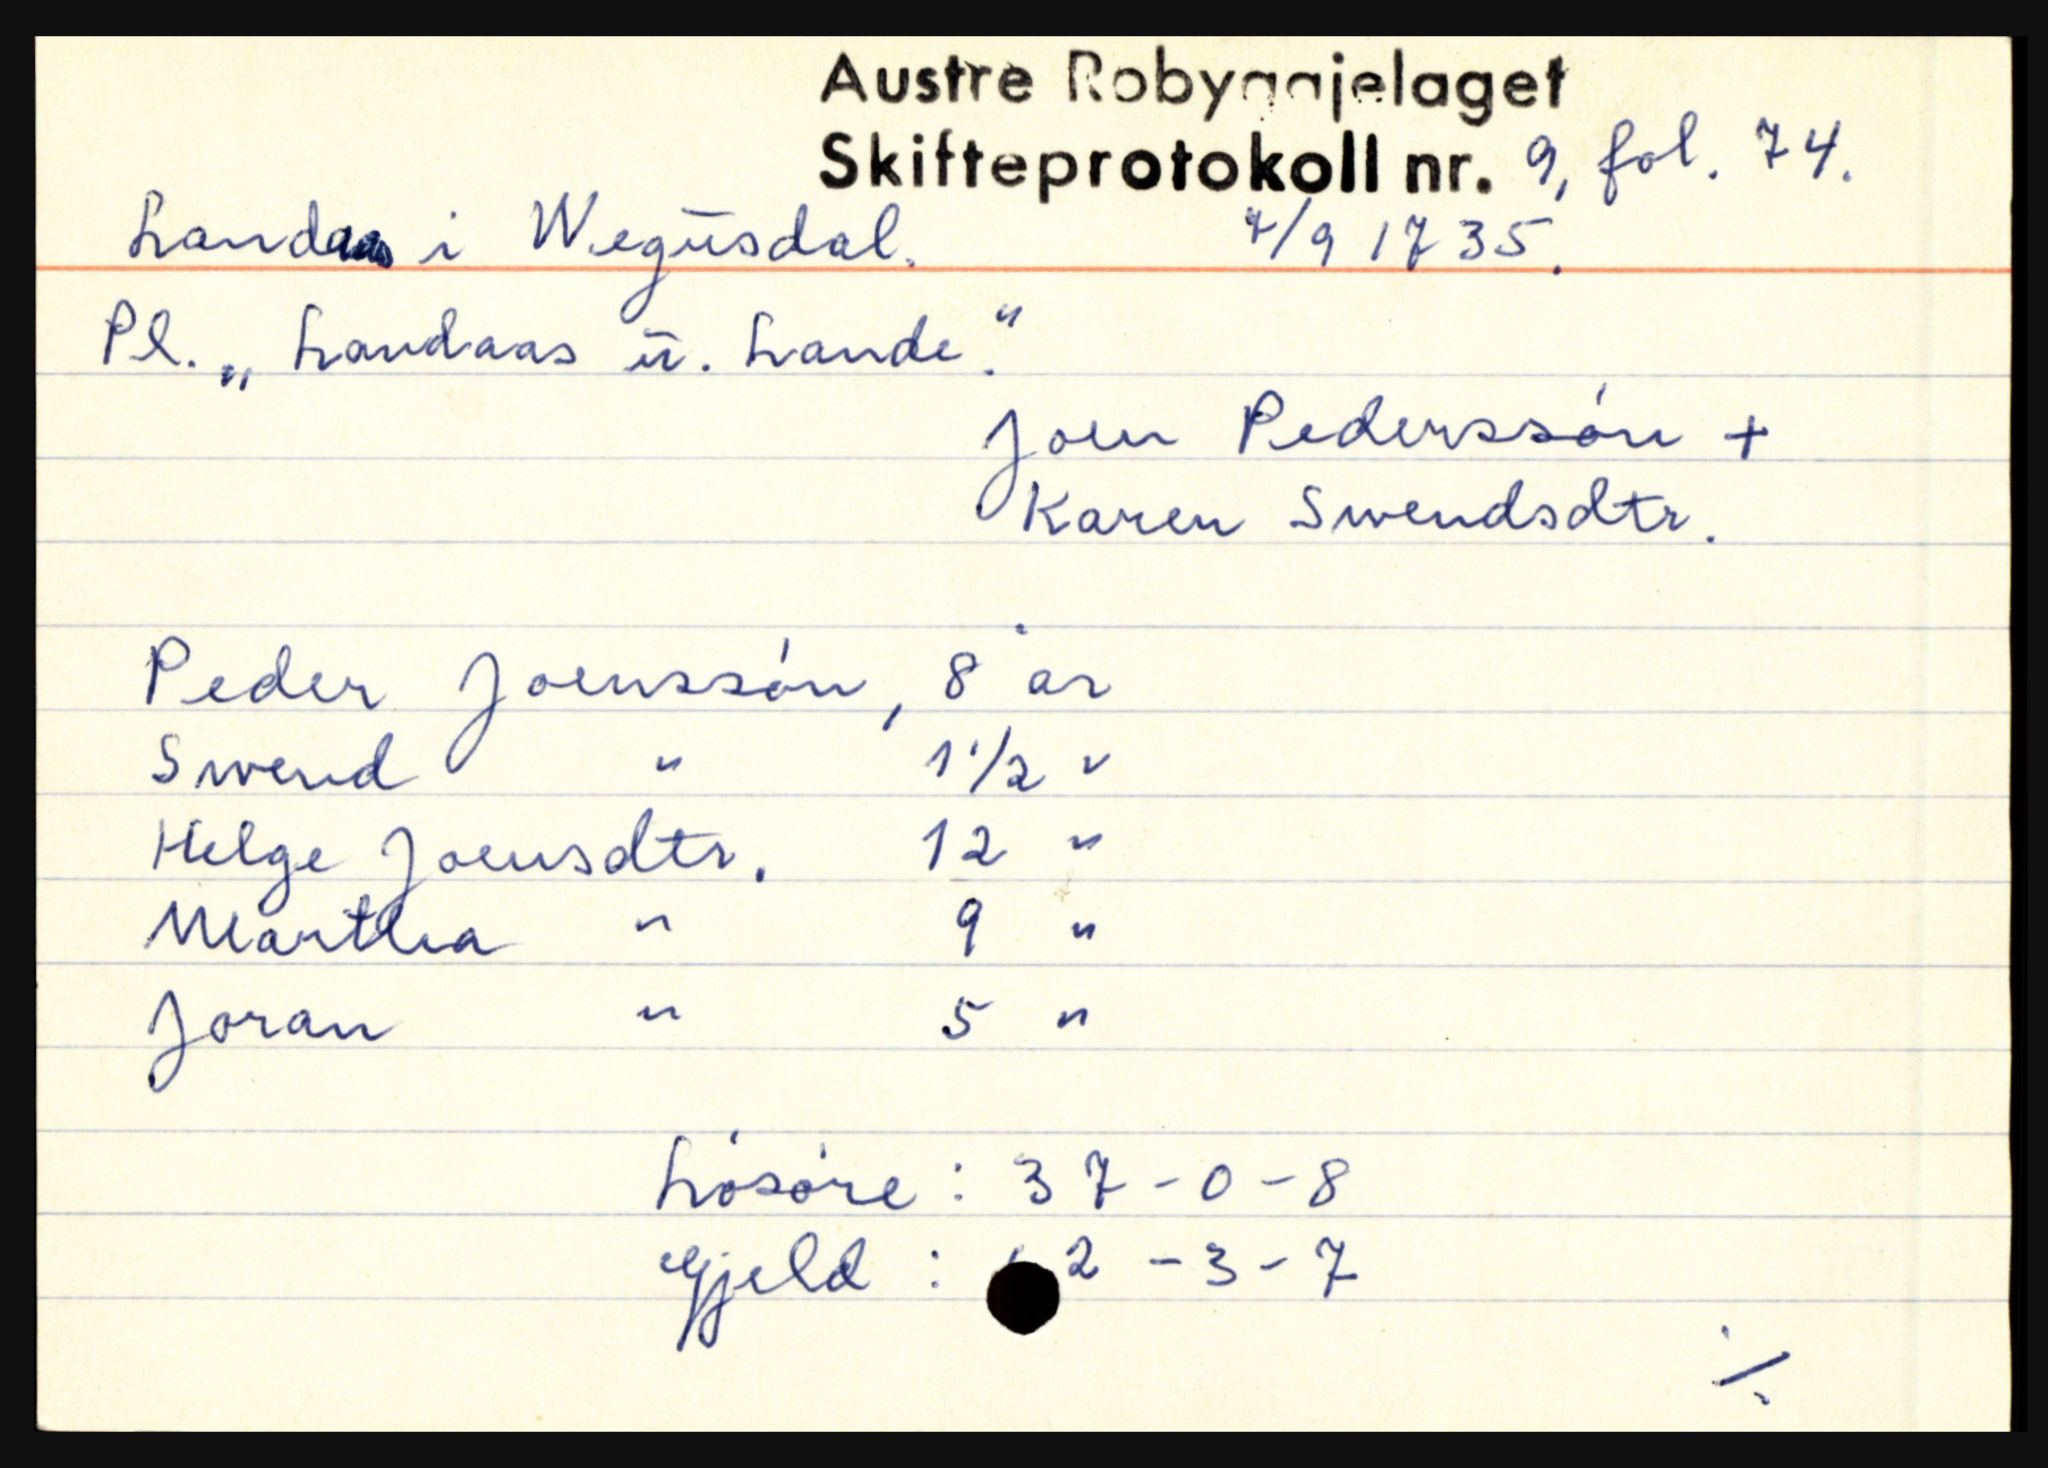 Austre Robyggjelaget
Skifteprotokoll nr. 9, fol. 74.
Landaas i Wegŭsdal. 7/9 1735.
Pl. „Landaas ŭ. Lande."
Joen Pederssón +
Karen Swendsdtr.
Peder Joenssón, 8 år
Swend " 1 1/2 "
Helge Joensdtr. 12 "
Martha " 9 "
Joran " 5 "
Lósóre : 37-0-8
Gjeld : 2-3-7
./.